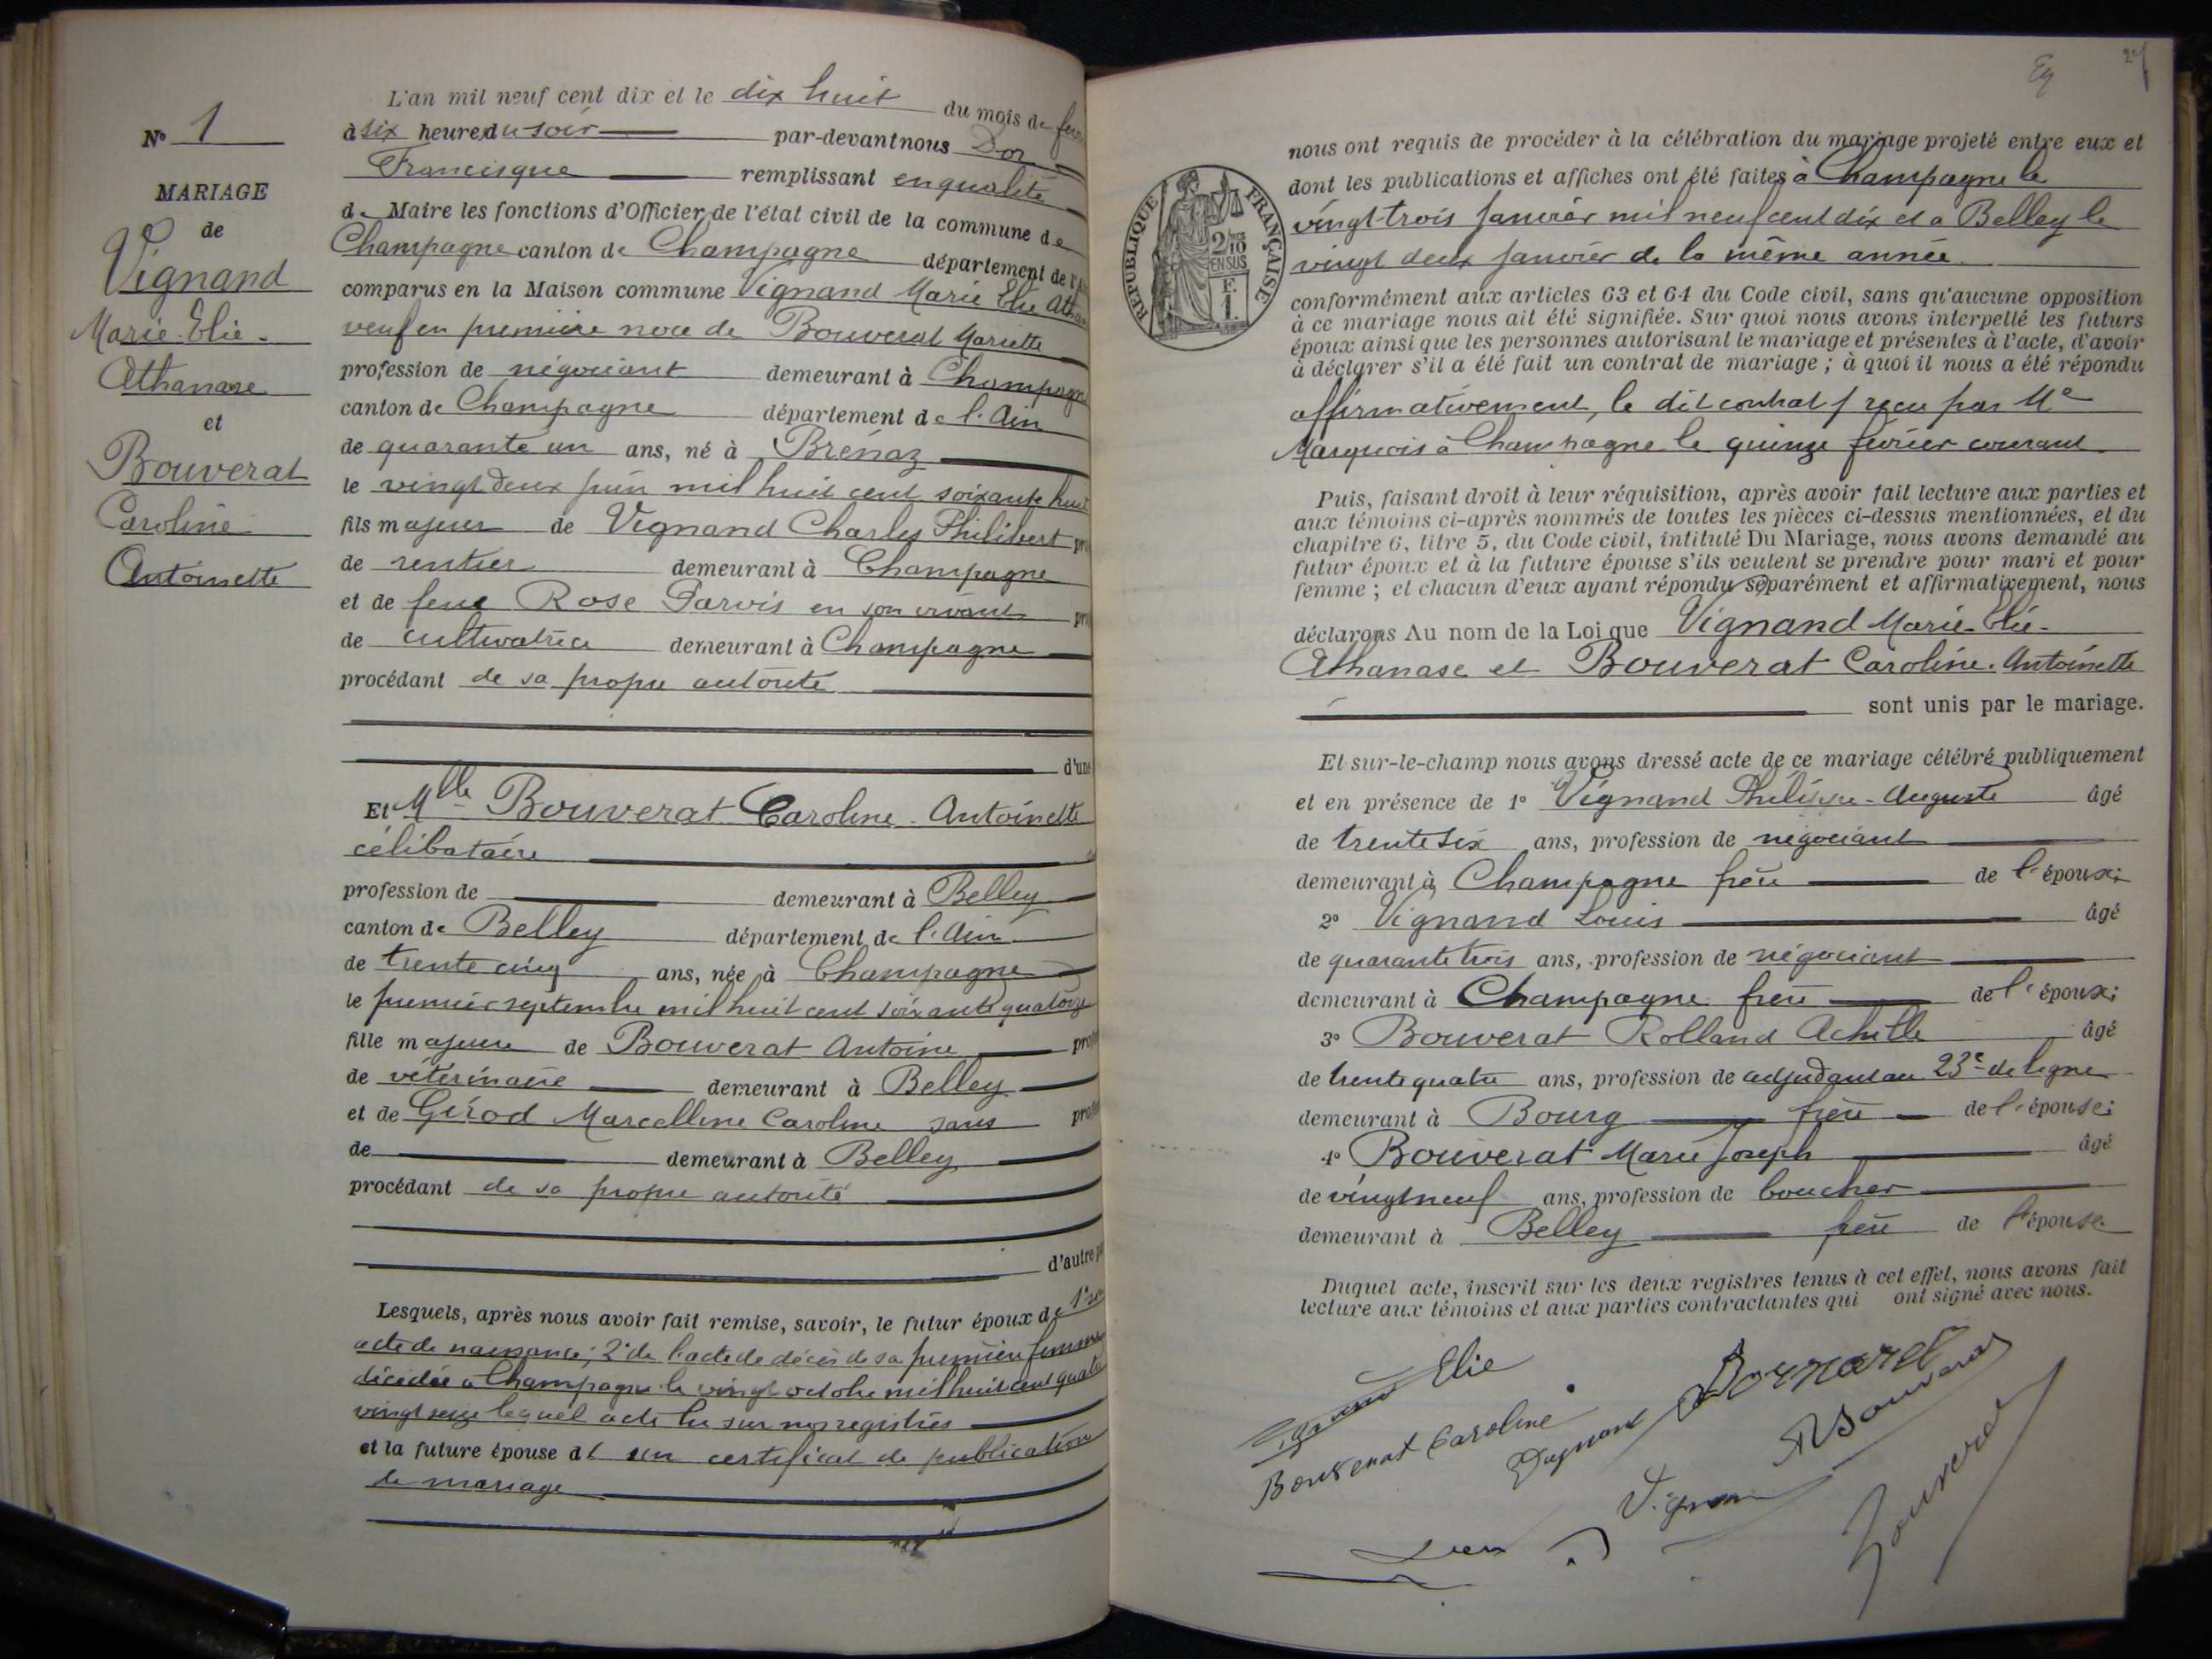 N° 1
MARIAGE
de
Vignand
Marie-Elie-
Athanase
et
Bouverat
Caroline
Antoinette
L'an mil neuf cent dix et le dix huit du mois de
à six heures du soir par-devant nous Dor
Francisque remplissant en qualité
de Maire les fonctions d'Officier de l'état civil de la commune de
Champagne canton de Champagne département de l'
comparus en la Maison commune Vignand Marie Elie
veuf en première noce de Bouverat Mariette
profession de négociant demeurant à Champagne
canton de Champagne département de l'Ain
de quarante un ans, né à Brénaz
le vingt deux juin mil huit cent soixante huit
fils majeur de Vignand Charles Philibert
de rentier demeurant à Champagne
et de feue Rose Parvis en son vivant
de cultivatrice demeurant à Champagne
procédant de sa propre autorité
d'une
Et Mlle Bouverat Caroline-Antoinette
célibataire
profession de demeurant à Belley
canton de Belley département de l'Ain
de trente cinq ans, née à Champagne
le premier septembre mil huit cent soixante quatorze
fille majeure de Bouverat Antoine
de vétérinaire demeurant à Belley
et de Girod Marcelline Caroline sans
de demeurant à Belley
procédant de sa propre autorité
d'autre
Lesquels, après nous avoir fait remise, savoir, le futur époux de 1° son
acte de naissance; 2° de l'acte de décès de sa première femme
décédée à Champagne le vingt octobre mil huit cent quatre
vingt seize lequel acte lu sur nos registres
et la future épouse d'un certificat de publication
de mariage
27
RÉPUBLIQUE FRANÇAISE
2/10
EN SUS
F.
1.
nous ont requis de procéder à la célébration du mariage projeté entre eux et
dont les publications et affiches ont été faites à Champagne le
vingt trois janvier mil neuf cent dix et à Belley le
vingt deux janvier de la même année
conformément aux articles 63 et 64 du Code civil, sans qu'aucune opposition
à ce mariage nous ait été signifiée. Sur quoi nous avons interpellé les futurs
époux ainsi que les personnes autorisant le mariage et présentes à l'acte, d'avoir
à déclarer s'il a été fait un contrat de mariage ; à quoi il nous a été répondu
affirmativement, le dit contrat reçu par Me
Marquois à Champagne le quinze février courant
Puis, faisant droit à leur réquisition, après avoir fait lecture aux parties et
aux témoins ci-après nommés de toutes les pièces ci-dessus mentionnées, et du
chapitre 6, titre 5, du Code civil, intitulé Du Mariage, nous avons demandé au
futur époux et à la future épouse s'ils veulent se prendre pour mari et pour
femme ; et chacun d'eux ayant répondu séparément et affirmativement, nous
déclarons Au nom de la Loi que Vignand Marie-Elie-
Athanase et Bouverat Caroline-Antoinette
sont unis par le mariage.
Et sur-le-champ nous avons dressé acte de ce mariage célébré publiquement
et en présence de 1° Vignand Philippe-Auguste âgé
de trente six ans, profession de négociant
demeurant à Champagne frère de l'époux;
2° Vignand Louis âgé
de quarante trois ans, profession de négociant
demeurant à Champagne frère de l'époux;
3° Bouverat Rolland Achille âgé
de trente quatre ans, profession de adjudant au 23e de ligne
demeurant à Bourg frère de l'épouse;
4° Bouverat Marie Joseph âgé
de vingt neuf ans, profession de boucher
demeurant à Belley frère de l'épouse
Duquel acte, inscrit sur les deux registres tenus à cet effet, nous avons fait
lecture aux témoins et aux parties contractantes qui ont signé avec nous.
Elie
Bouverat Caroline
Vignand